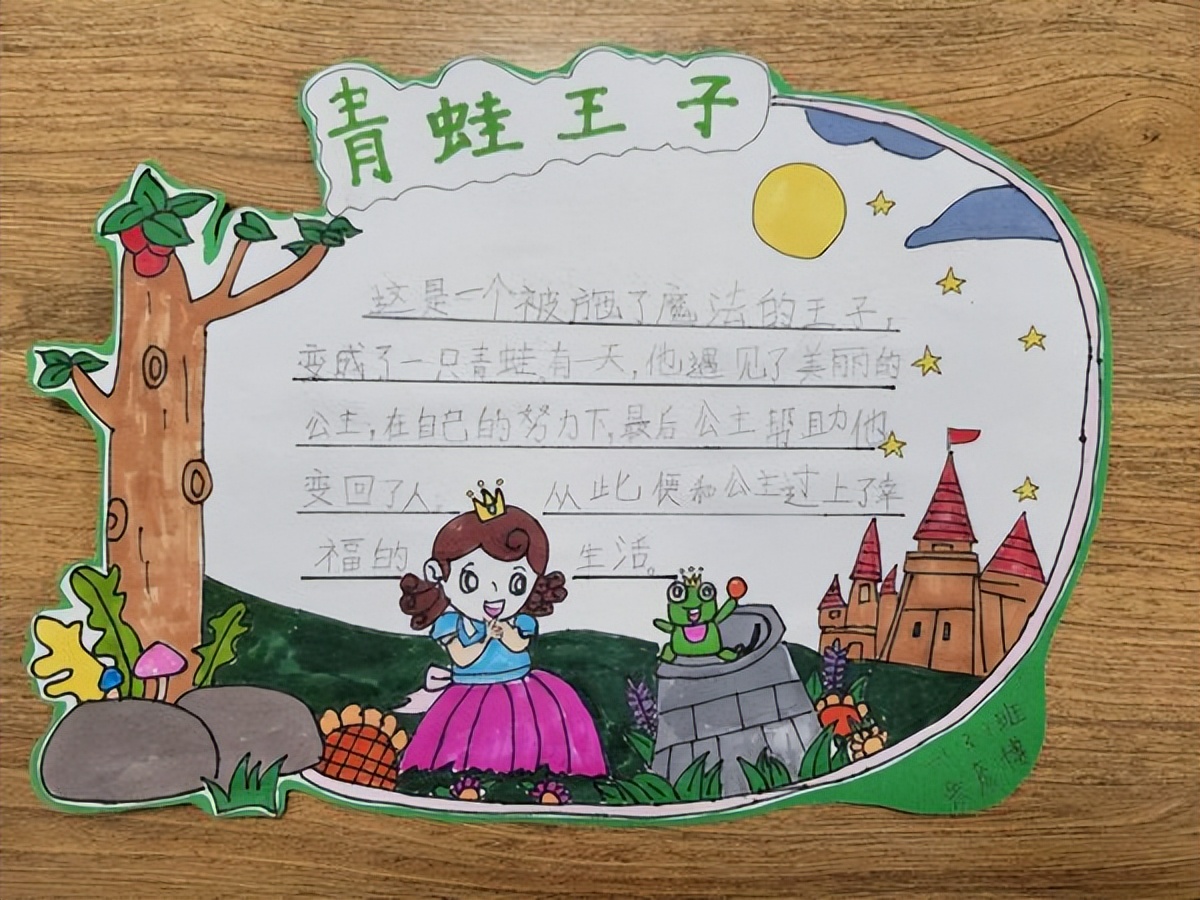 青蛙王子
这是一个被施了魔法的王子,
变成了一只青蛙,有一天,他遇见了美丽的
公主,在自己的努力下,最后公主帮助他
变回了人。从此便和公主过上了幸
福的生活。
班